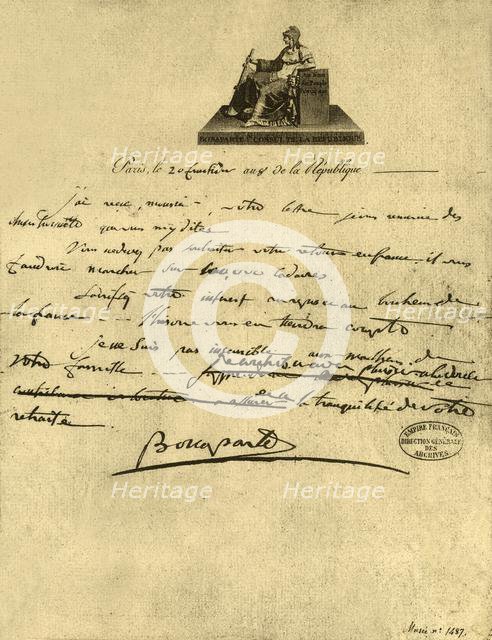 Au nom
du Peuple
Français
BONAPARTE 1er CONSUL DE LA RÉPUBLIQUE
Paris, le 20 fructidor an 8 de la République
j'ai reçu, monsieur, votre lettre je vous remercie des
que vous my dites
Vous ne devez pas souhaiter votre retour en france il vous
faudrait marcher sur cadavres
Sacrifiez votre interest au repos et au bonheur de
la france L'histoire vous en tiendra compte
je ne suis pas insensible aux malheurs de
votre famille
a tranquilité de votre
retraite
Bonaparte
EMPIRE FRANÇAIS
DIRECTION GÉNÉRALE
DES
ARCHIVES
Musée n° 1487.
Heritage
Heritage
Heritage
Heritage
Heritage
Heritage
Heritage
Heritage
C